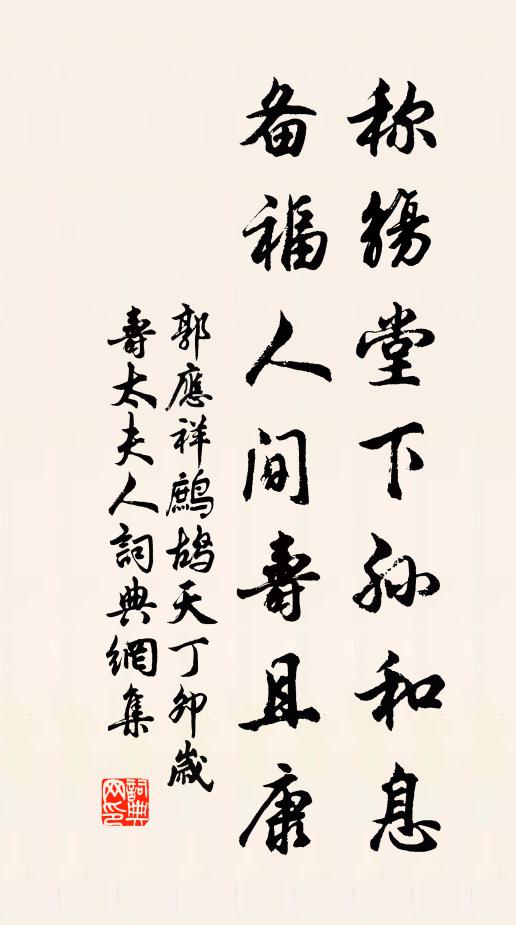 称觴堂下孙和息
备福人间壽且康
郭應祥鷓鴣天丁卯歲
壽太夫人詞典網集
詞典网印